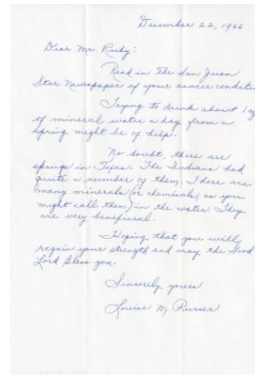 December 22, 1966
Dear Mr. Ruby:
Read in The San Juan
Star Newspaper of your cancer condition
Trying to drink about 1
of mineral water a day from a
spring might be of help.
No doubt, there are
springs in Texas. The Indians had
quite a number of them. There are
many minerals (or chemicals, as you
might call them) in the water. They
are very beneficial.
Hoping that you will
regain your strength and may the Good
Lord Bless you.
Sincerely yours
Louise M.